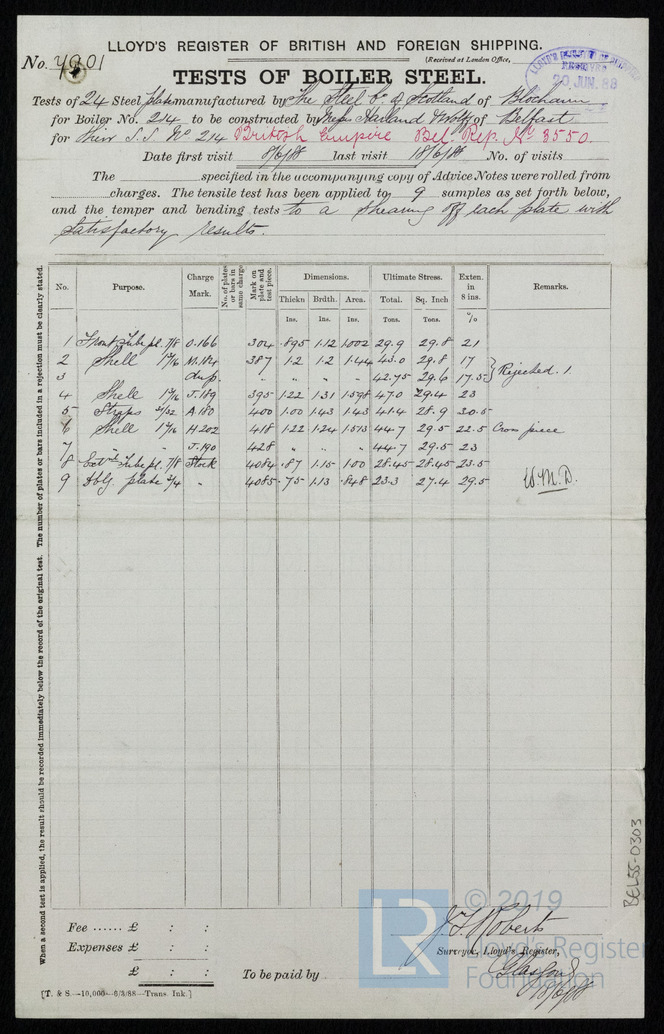 LLOYD'S REGISTER OF BRITISH AND FOREIGN SHIPPING.
No. 4901
(Received at London Office,
LLOYD'S REGISTER OF SHIPPING
RECEIVED
20 JUN. 88
TESTS OF BOILER STEEL.
Tests of 24 Steel plates manufactured by The Steel Co of Scotland of Blochairn
for Boiler No. 214 to be constructed by Mess Harland & Wolff of Belfast
for their S.S. No 214 British Empire Bel. Rep. No 3550.
Date first visit 8/6/88 last visit 18/6/88 No. of visits
The specified in the accompanying copy of Advice Notes were rolled from
charges. The tensile test has been applied to 9 samples as set forth below,
and the temper and bending tests to a shearing off each plate with
satisfactory results.
No. Purpose. Charge Mark. No. of plates or bars in same charge Mark on plate and test piece. Dimensions. Ultimate Stress. Exten. in 8 ins. Remarks.
Thickn Brdth. Area. Total. Sq. Inch
Ins. Ins. Ins. Tons. Tons. %
1 Front Tube pl. 7/8 O.166 304 .895 1.12 1.002 29.9 29.8 21
2 Shell 1 3/16 M.184 387 1.2 1.2 1.44 43.0 29.8 17
3 dup. " " " 42.75 29.6 17.5 } Rejected. 1.
4 Shell 1 3/16 J.189 395 1.22 1.31 1.598 47.0 29.4 23
5 Straps 31/32 A 180 400 1.00 1.43 1.43 41.4 28.9 20.5
6 Shell 1 3/16 H 202 418 1.22 1.24 1.513 44.7 29.5 22.5 Cross piece
7 " " J.190 428 " " " 44.7 29.5 23
8 Tube pl. 7/8 Stock 4084 .87 1.15 1.00 28.45 28.45 23.5
9 Dblg. plate 3/4 " 4085 .75 1.13 .848 23.3 27.4 29.5
W.M.D.
When a second test is applied, the result should be recorded immediately below the record of the original test. The number of plates or bars included in a rejection must be clearly stated.
BEL55-0303
Fee ...... £ : :
Expenses £ : :
£ : :
To be paid by
J.T. Roberts
Surveyor, Lloyd's Register,
Glasgow
18/6/88
[T. & S.—10,000—6/3/88—Trans. Ink.]
LR
© 2019
Lloyd's Register
Foundation